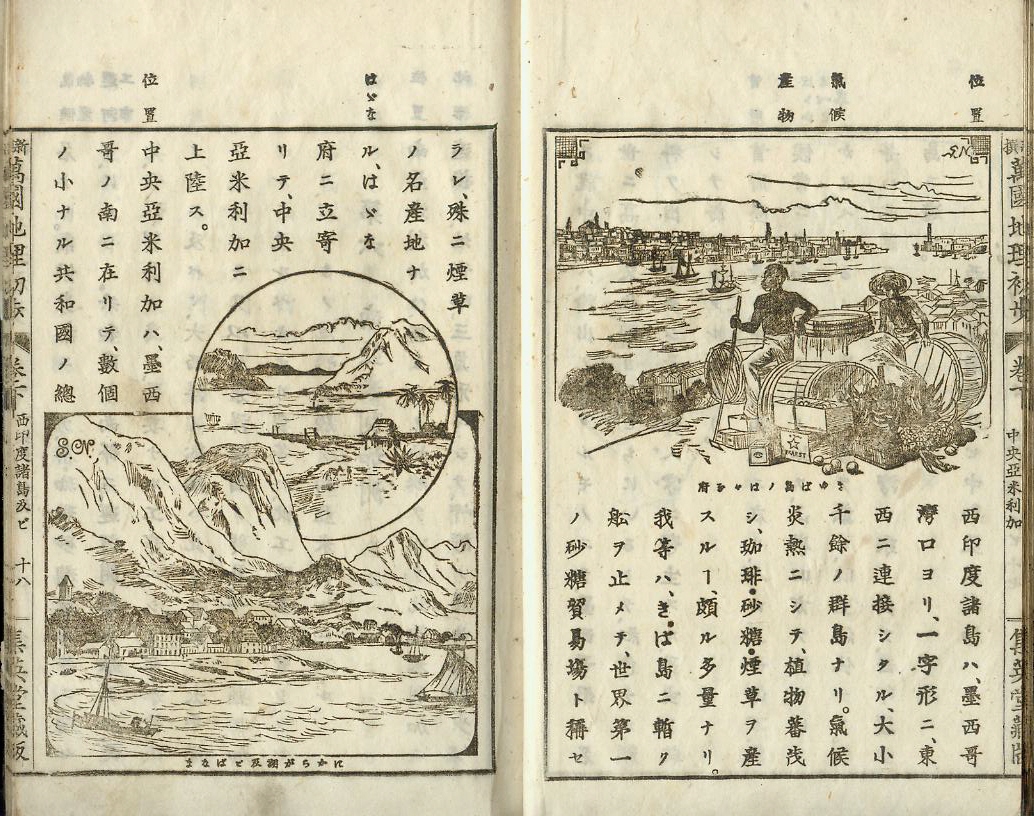 位置
氣候
産物
きゆば島ノはゞな府
西印度諸島ハ、墨西哥
灣口ヨリ、一字形ニ、東
西ニ連接シタル、大小
千餘ノ群島ナリ。氣候
炎熱ニシテ、植物蕃茂
シ、珈琲・砂糖・煙草ヲ産
スルヿ、頗ル多量ナリ。
我等ハ、きば島ニ暫ク
舩ヲ止メテ、世界第一
ノ砂糖貿易場ト稱セ
萬國地理初步
卷下
中央亞米利加
集英堂藏版
はゞな
位置
ラレ、殊ニ煙草
ノ名産地ナ
ル、はゞな
府ニ立寄
リテ、中央
亞米利加ニ
上陸ス。
中央亞米利加ハ、墨西
哥ノ南ニ在リテ、數個
ノ小ナル共和國ノ總
S.N.
にからが湖及ビぱなま
新撰萬國地理初步
卷下
西印度諸島及ビ
十八
集英堂藏版